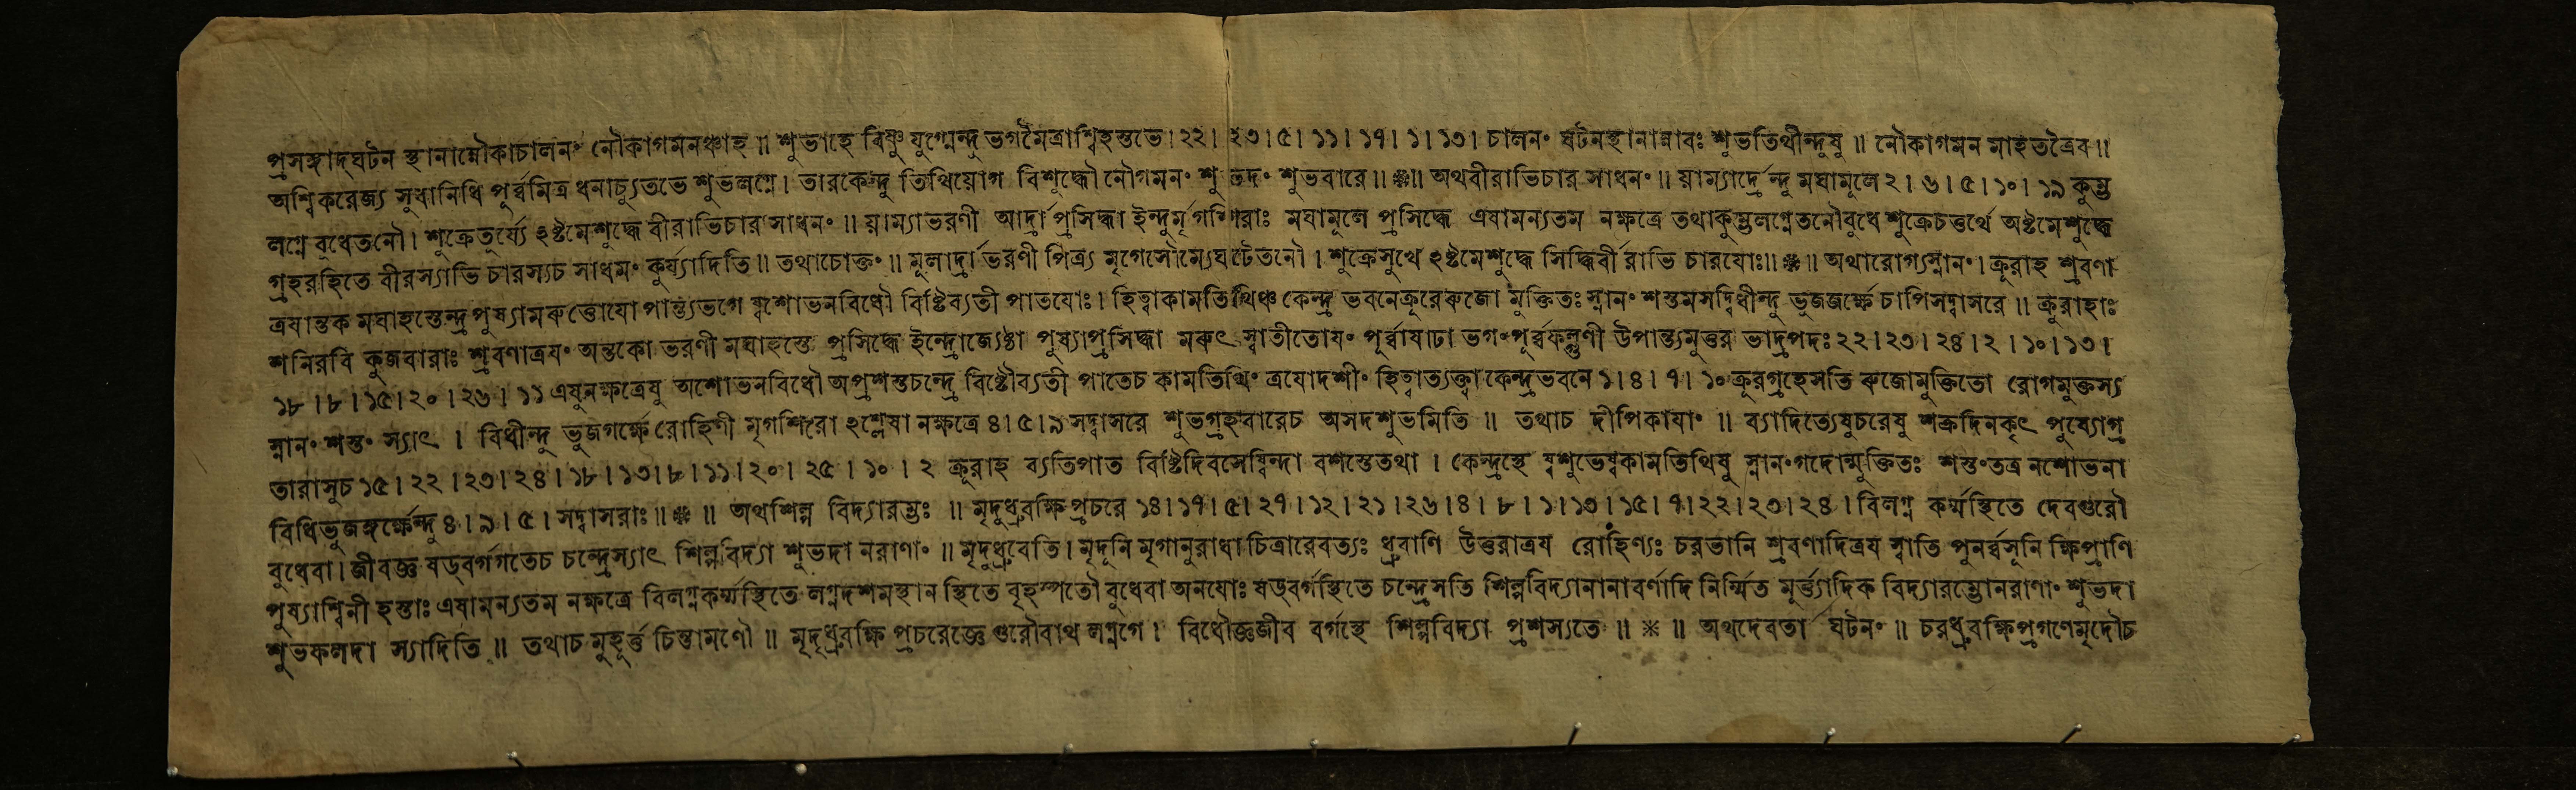 প্রসঙ্গাদ্ঘটন স্থানান্নৌকাচালনং নৌকাগমনঞ্চাহ ॥ শুভাহে বিষ্ণু যুগ্মেন্দু ভগমৈত্রাশ্বিহস্তভে । ২২ । ২৩ । ৫ । ১১ । ১৭ । ১ । ১৩ । চালনং ঘটনস্থানান্নাবঃ শুভতিথীন্দুষু ॥ নৌকাগমন মাহ তত্রৈব ॥
অশ্বিকরেজ্য সুধানিধি পূর্ব্বমিত্র ধনাচ্যুতভে শুভলগ্নে । তারকেন্দু তিথিযোগ বিশুদ্ধৌ নৌগমনং শুভদং শুভবারে ॥ ❈ ॥ অথবীরাভিচার সাধনং ॥ যাম্যার্দ্রেন্দু মঘামূলে ২ । ৬ । ৫ । ১০ । ১৯ কুম্ভ
লগ্নে বুধেতনৌ । শুক্রেতুর্য্যে ঽষ্টমেশুদ্ধে বীরাভিচার সাধনং ॥ যাম্যাভরণী আর্দ্রা প্রসিদ্ধা ইন্দুর্মৃগশিরাঃ মঘামূলে প্রসিদ্ধে এষামন্যতম নক্ষত্রে তথাকুম্ভলগ্নেতনৌবুধে শুক্রেচতুর্থে অষ্টমেশুদ্ধে
গ্রহরহিতে বীরস্যাভি চারস্যচ সাধমং কুর্য্যাদিতি ॥ তথাচোক্তং ॥ মূলার্দ্রা ভরণী পিত্র্য মৃগেসৌম্যেঘটেতনৌ । শুক্রেসুখে ঽষ্টমেশুদ্ধে সিদ্ধির্বীরাভি চারযোঃ ॥ ❈ ॥ অথারোগ্যস্নানং । ক্রূরাহ শ্রবণা
ত্রযান্তক মঘাহস্তেন্দ্র পুষ্যামরুত্তোযো পান্ত্যভগে ষ্বশোভনবিধৌ বিষ্টিব্যতী পাতযোঃ । হিত্বাকামতিথিঞ্চ কেন্দ্র ভবনেক্রূরেরুজো মুক্তিতঃ স্নানং শস্তমসদ্বিধীন্দু ভুজজর্ক্ষে চাপিসদ্বাসরে ॥ ক্রূরাহাঃ
শনিরবি কুজবারাঃ শ্রবণাত্রযং অন্তকো ভরণী মঘাহস্তে প্রসিদ্ধে ইন্দ্রোজ্যেষ্ঠা পুষ্যাপ্রসিদ্ধা মরুৎ স্বাতীতোযং পূর্ব্বাষাঢা ভগং পূর্ব্বফল্গুণী উপান্ত্যমুত্তর ভাদ্রপদঃ ২২ । ২৩ । ২৪ । ২ । ১০ । ১৩ ।
১৮ । ৮ । ১৫ । ২০ । ২৬ । ১১ এষুনক্ষত্রেষু অশোভনবিধৌ অপ্রশস্তচন্দ্রে বিষ্টৌব্যতী পাতেচ কামতিথিং ত্রযোদশীং হিত্বাত্যক্ত্বা কেন্দ্রভবনে ১ । ৪ । ৭ । ১০ ক্রূরগ্রহেসতি রুজোমুক্তিতো রোগমুক্তস্য
স্নানং শস্তং স্যাৎ । বিধীন্দু ভুজগর্ক্ষে রোহিণী মৃগশিরা ঽশ্লেষা নক্ষত্রে ৪ । ৫ । ৯ সদ্বাসরে শুভগ্রহবারেচ অসদশুভমিতি ॥ তথাচ দীপিকাযাং ॥ ব্যাদিত্যেষুচরেষু শক্রদিনকৃৎ পুষ্যোগ্র
তারাসুচ ১৫ । ২২ । ২৩ । ২৪ । ১৮ । ১৩ । ৮ । ১১ । ২০ । ২৫ । ১০ । ২ ক্রূরাহ ব্যতিপাত বিষ্টিদিবসেষ্বিন্দা বশস্তেতথা । কেন্দ্রস্থে ষ্বশুভেষ্বকামতিথিষু স্নানংগদোন্মুক্তিতঃ শস্তংতত্র নশোভনা
বিধিভুজঙ্গর্ক্ষেন্দু ৪ । ৯ । ৫ । সদ্বাসরাঃ ॥ ❈ ॥ অথশিল্প বিদ্যারম্ভঃ ॥ মৃদুধ্রুবক্ষিপ্রচরে ১৪ । ১৭ । ৫ । ২৭ । ১২ । ২১ । ২৬ । ৪ । ৮ । ১ । ১৩ । ১৫ । ৭ । ২২ । ২৩ । ২৪ । বিলগ্ন কর্ম্মস্থিতে দেবগুরৌ
বুধেবা । জীবজ্ঞ ষড্বর্গগতেচ চন্দ্রেস্যাৎ শিল্পবিদ্যা শুভদা নরাণাং ॥ মৃদুধ্রুবেতি । মৃদূনি মৃগানুরাধা চিত্রারেবত্যঃ ধ্রুবাণি উত্তরাত্রয রোহিণ্যঃ চরভানি শ্রবণাদিত্রয স্বাতি পুনর্ব্বসূনি ক্ষিপ্রাণি
পুষ্যাশ্বিনী হস্তাঃ এষামন্যতম নক্ষত্রে বিলগ্নকর্ম্মস্থিতে লগ্নদশমস্থান স্থিতে বৃহস্পতৌ বুধেবা অনযোঃ ষড্বর্গস্থিতে চন্দ্রেসতি শিল্পবিদ্যানানাবর্ণাদি নির্ম্মিত মুর্ত্ত্যাদিক বিদ্যারম্ভোনরাণাং শুভদা
শুভফলদা স্যাদিতি ॥ তথাচ মুহূর্ত্ত চিন্তামণৌ ॥ মৃদুধ্রুবক্ষি প্রচরেজ্ঞে গুরৌবাথ লগ্নগে । বিধৌজ্ঞজীব বর্গস্থে শিল্পবিদ্যা প্রশস্যতে ॥ ❈ ॥ অথদেবতা ঘটনং ॥ চরধ্রুবক্ষিপ্রগণেমৃদৌচ